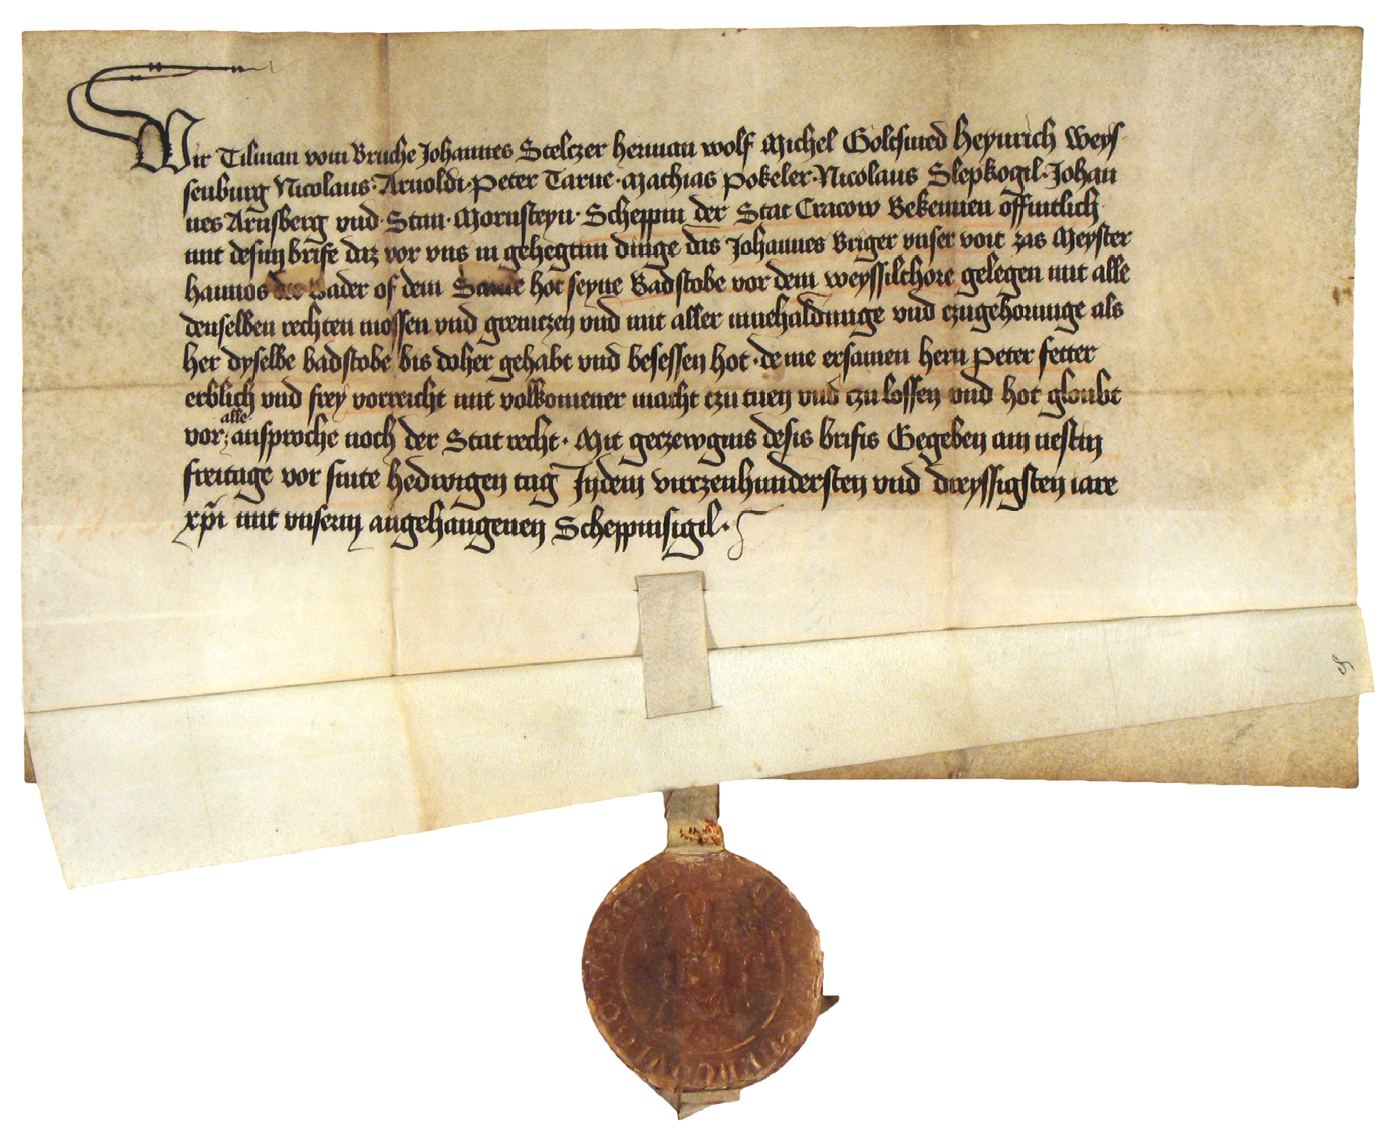 Wir Tilman vom Bruche Johannes Stelczer herman wolf Michel Goltsmed Heynrich Weys
senburg Nicolaus · Arnoldi · Peter Tarne · Mathias Pokeler · Nicolaus Slepkogil · Johan
nes Arnsberg vnd · Stan · Mornsteyn · Scheppin der Stat Cracow Bekennen offintlich
mit desim brife daz vor vns in gehegtim dinge das Johannes Briger vnser voit zas Meyster
hannos der Bader of dem Sande hot seyne Badstobe vor dem weyssilthore gelegen mit alle
denselben rechten mossen vnd grenitczen vnd mit aller innehaldunge vnd czugehorunge als
her dyselbe badstobe bis doher gehabt vnd besessen hot · deme ersamen hern Peter fetter
erblich vnd frey vorreicht mit volkomener macht czu tuen vnd czu lossen vnd hot gloubt
vor alle ansproche noch der Stat recht · Mit geczewgnis desis brifis Gegeben am nestin
freitage vor sinte hedwigen tag Indem virczenhundersten vnd dreyssigsten iare
xpi mit vnserm angehangenen Scheppinsigil ·